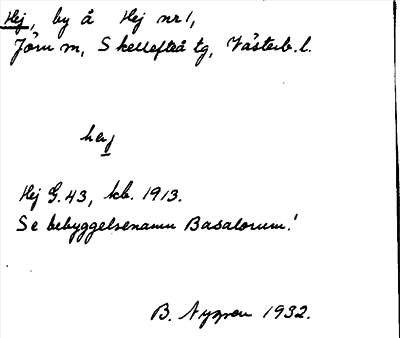 Hej, by å Hej nr 1,
Jörn sn, Skellefteå tg, Västerb. l.
hej
Hej G.43, kb. 1913.
Se bebyggelsenamn Basatorum!
B. Nygren 1932.